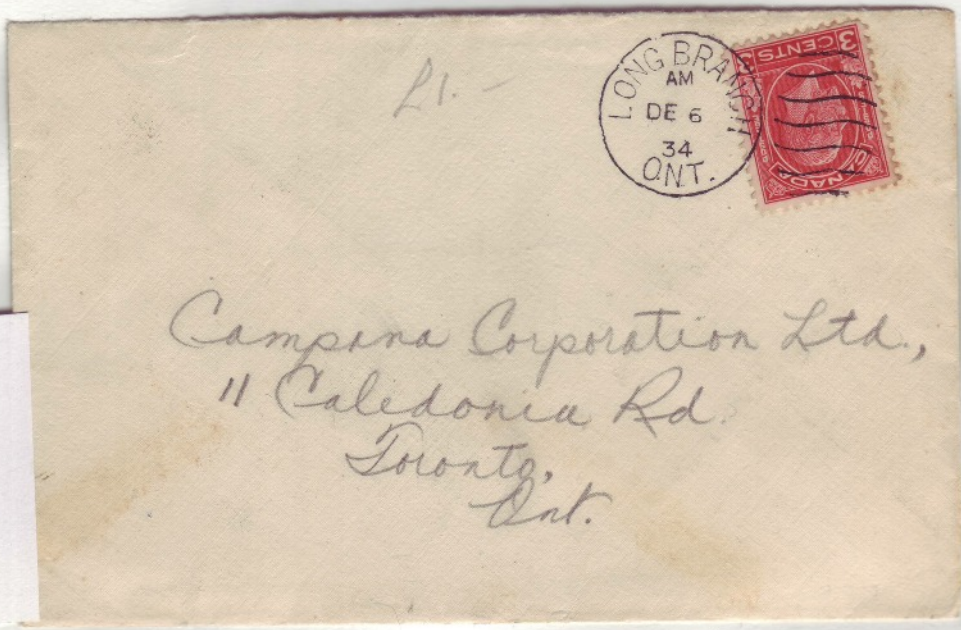 £1.-
LONG BRANCH
AM
DE 6
34
ONT.
3 CENTS 3
CANADA
Campana Corporation Ltd.,
11 Caledonia Rd.
Toronto,
Ont.